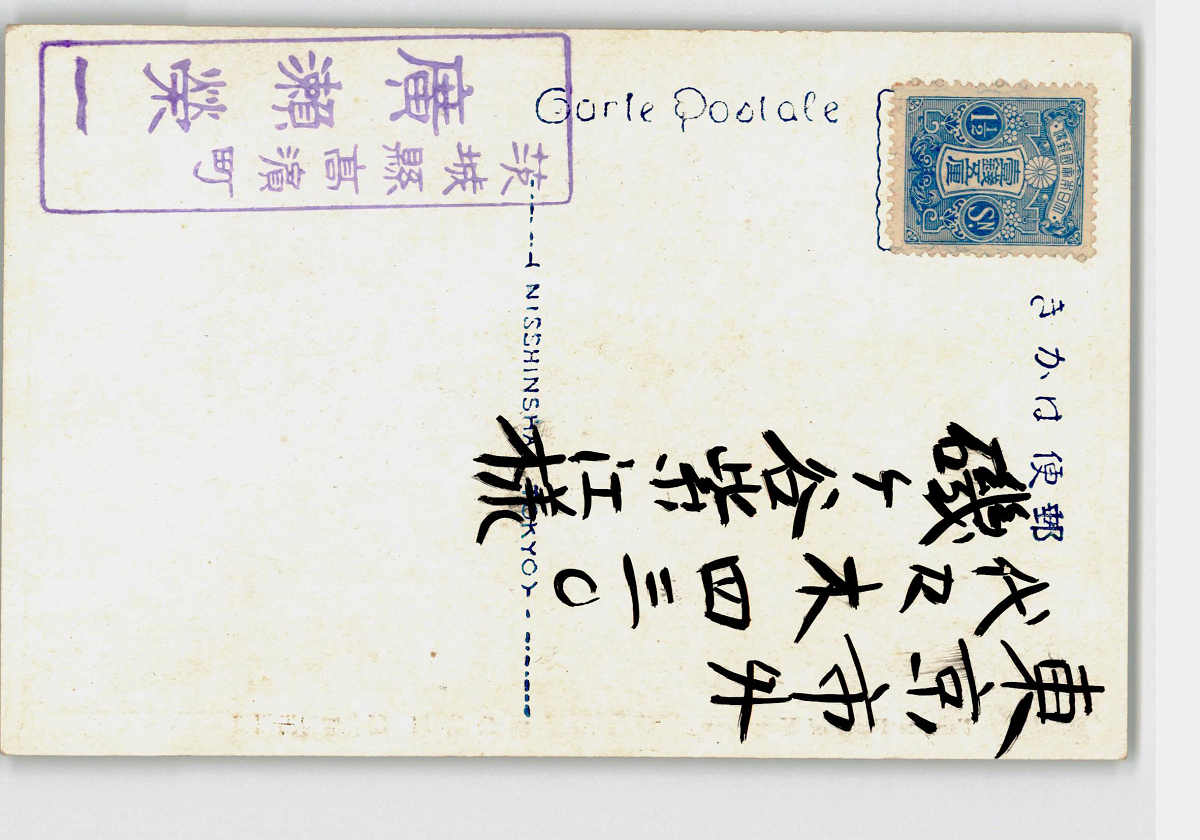 郵便はかき
東京市外
代々木四三〇
磯ヶ谷紫江様
茨城縣高濱町
廣瀬榮一
Carte Postale
(NISSHINSHA TOKYO)
大日本帝國郵便
壹錢五厘
1½
Sn.